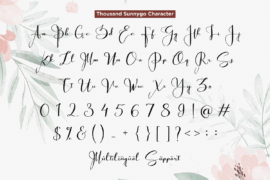 Thousand Sunnygo Character
Aa Bb Cc Dd Ee Ff Gg Hh Ii Jj
Kk Ll Mm Nn Oo Pp Qq Rr Ss
Tt Uu Vv Ww Xx Yy Zz
0 1 2 3 4 5 6 7 8 9 ! @ #
$ % & ( ) _ + { } [ ] ? < > : ;
Multilingual Support